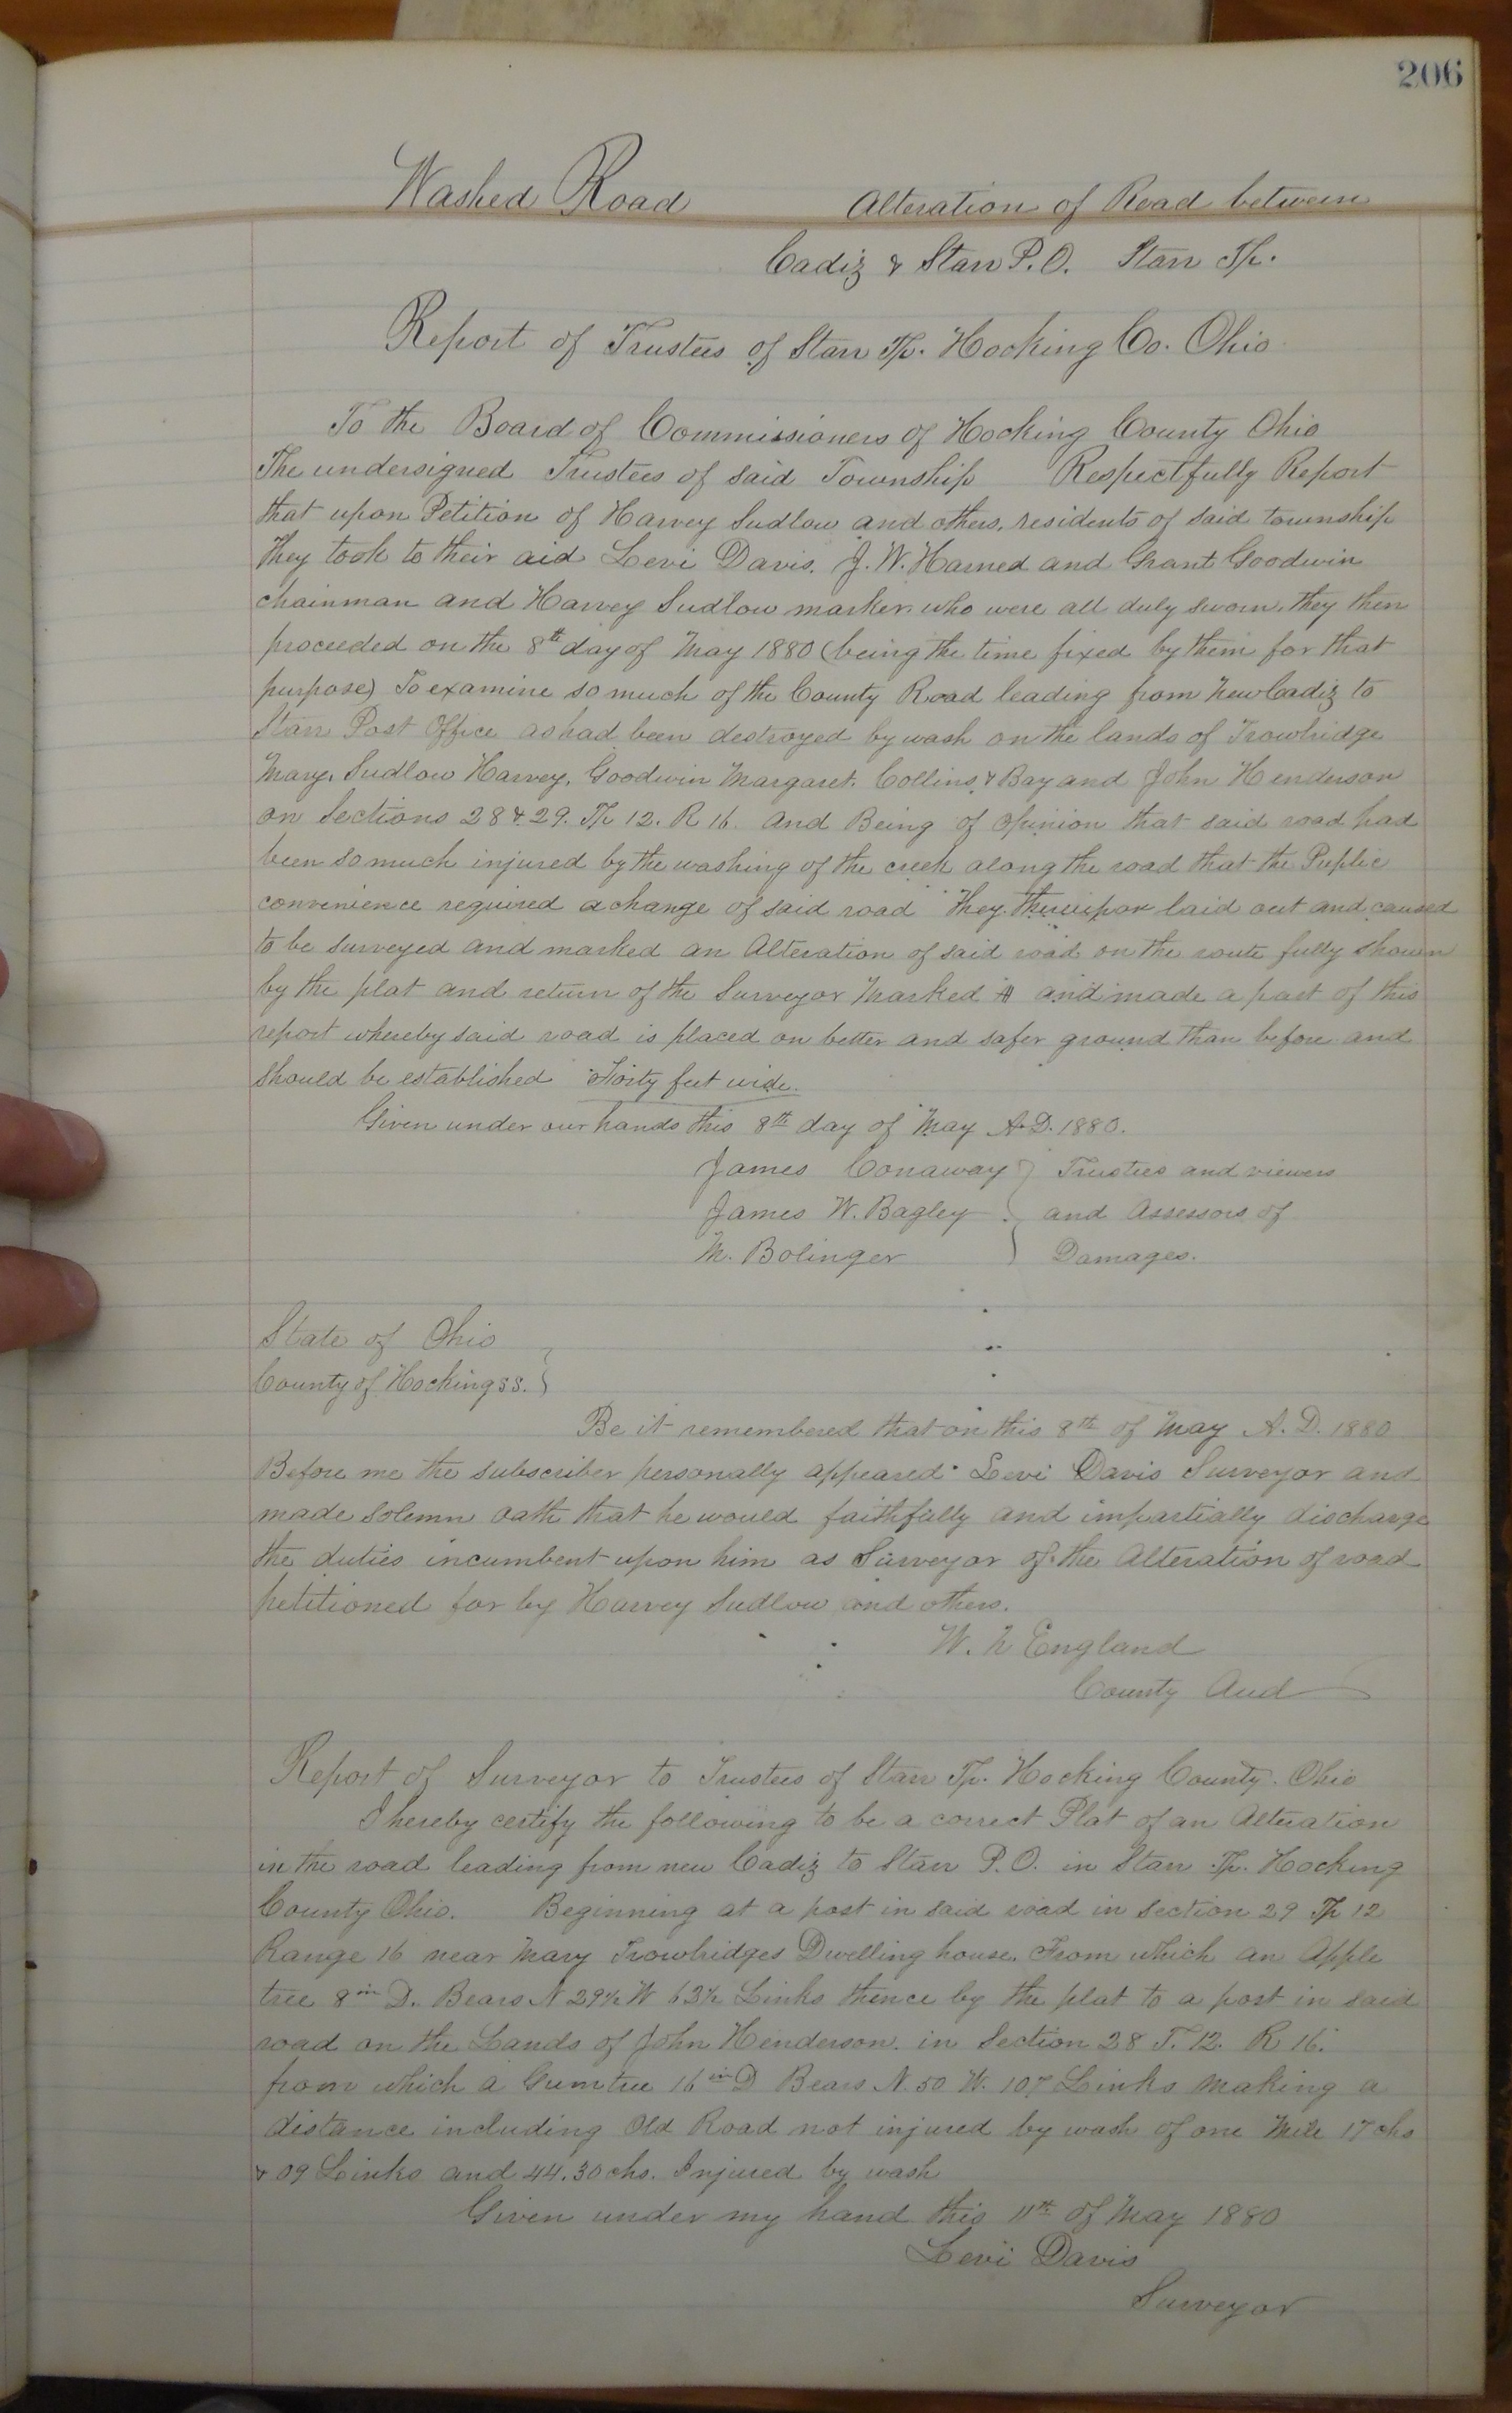 206
Washed Road Alteration of Road between
Cadiz & Starr P.O. Starr Tp.
Report of Trustees of Starr Tp. Hocking Co. Ohio
To the Board of Commissioners of Hocking County Ohio
The undersigned Trustees of said Township Respectfully Report
that upon Petition of Harvey Sudlow and others, residents of said township
they took to their aid Levi Davis. J. W. Harned and Grant Goodwin
chainman and Harvey Sudlow marker who were all duly sworn, they then
proceeded on the 8th day of May 1880 (being the time fixed by them for that
purpose) To examine so much of the County Road leading from New Cadiz to
Starr Post Office as had been destroyed by wash on the lands of Trowbridge
Mary, Sudlow Harvey, Goodwin Margaret. Collins & Bay and John Henderson
on Sections 28 & 29. Tp 12. R 16. And Being of Opinion that said road had
been so much injured by the washing of the creek along the road that the Public
convenience required a change of said road They thereupon laid out and caused
to be surveyed and marked an Alteration of said road on the route fully shown
by the plat and return of the Surveyor Marked A and made a part of this
report whereby said road is placed on better and safer ground than before and
should be established Forty feet wide.
Given under our hands this 8th day of May A.D. 1880.
James Conaway } Trustees and viewers
James W. Bagley } and Assessors of
M. Bolinger } Damages.
State of Ohio
County of Hocking SS. }
Be it remembered that on this 8th of May A.D. 1880
Before me the subscriber personally appeared Levi Davis Surveyor and
made solemn oath that he would faithfully and impartially discharge
the duties incumbent upon him as Surveyor of the Alteration of road
petitioned for by Harvey Sudlow and others.
W. h England
County Aud
Report of Surveyor to Trustees of Starr Tp. Hocking County. Ohio
I hereby certify the following to be a correct Plat of an Alteration
in the road leading from new Cadiz to Starr P.O. in Starr Tp. Hocking
County Ohio. Beginning at a post in said road in section 29 Tp 12
Range 16 near Mary Trowbridges Dwelling house. From which an Apple
tree 8 in D. Bears N 29½ W 63½ Links thence by the plat to a post in said
road on the Lands of John Henderson. in Section 28 T. 12. R 16.
from which a Gum tree 16 in D Bears N. 50 W. 107 Links making a
distance including Old Road not injured by wash of one Mile 17 chs
& 09 Links and 44.30 chs. Injured by wash
Given under my hand this 11th of May 1880
Levi Davis
Surveyor